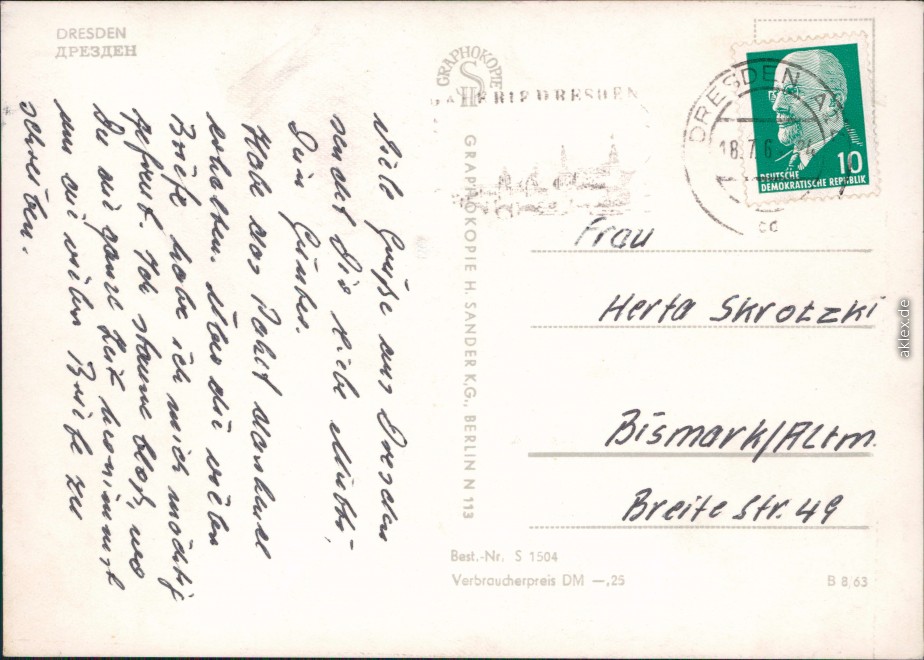 DRESDEN
ДРЕЗДЕН
Viele Grüße aus Dresden
sendet Dir liebe Mutti,
Dein Günter.
Habe das Paket dankend
erhalten. Über die vielen
Briefe habe ich mich mächtig
gefreut. Ich staune bloß, wo
Du die ganze Zeit hernimmst
um die vielen Briefe zu
schreiben.
GRAPHOKOPIE
GRAPHOKOPIE H. SANDER K.G., BERLIN N 113
DRESDEN
DRESDEN
18.7.6
DEUTSCHE
DEMOKRATISCHE REPUBLIK
10
cc
Frau
Herta Skrotzki
Bismark/Altm.
Breite Str. 49
Best.-Nr. S 1504
Verbraucherpreis DM —,25
B 8/63
aklex.de